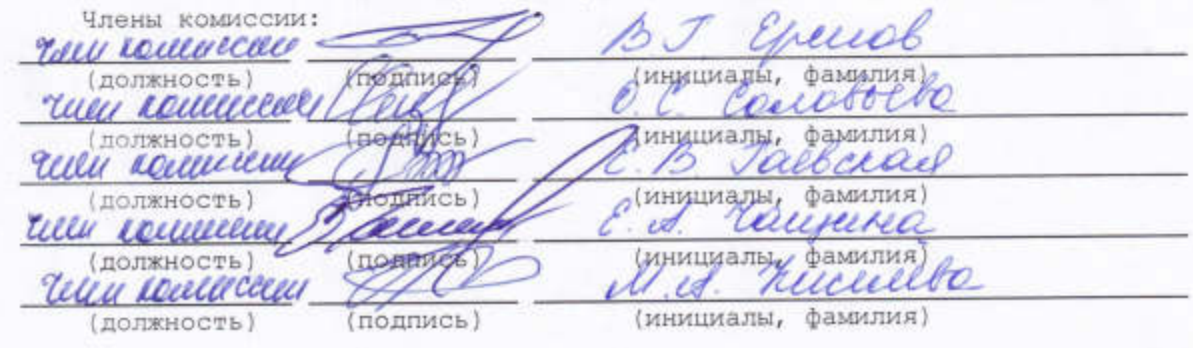 Члены комиссии:
член комиссии В Г Ермов
(должность) (подпись) (инициалы, фамилия)
член комиссии О. С. Соловьева
(должность) (подпись) (инициалы, фамилия)
член комиссии Е. В. Гаевская
(должность) (подпись) (инициалы, фамилия)
член комиссии Е. А. Чащина
(должность) (подпись) (инициалы, фамилия)
член комиссии М. А. Киселева
(должность) (подпись) (инициалы, фамилия)